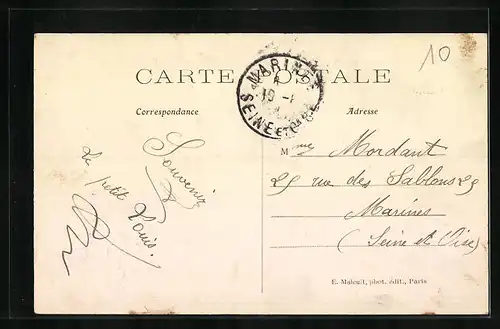 10
CARTE POSTALE
MARINES
19
SEINE ET OISE
Correspondance
Adresse
Souvenir
Le petit Louis.
Mme Mordant
25 rue des Sablons 25
Marines
(Seine et Oise)
E. Malcuit, phot. édit., Paris